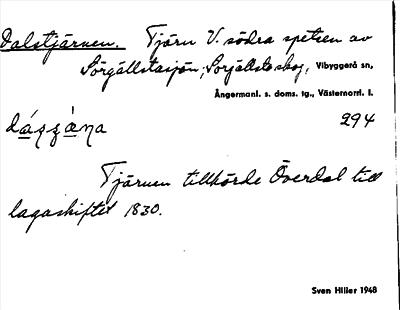 Dalstjärnen. Tjärn V. södra spetsen av
Sörgällstasjön, Sörgällsta skog, Vibyggerå sn,
Ångermanl. s. doms. tg., Västernorrl. l.
294
Tjärnen tillhörde Överdal till
lagaskiftet 1830.
Sven Hiller 1948